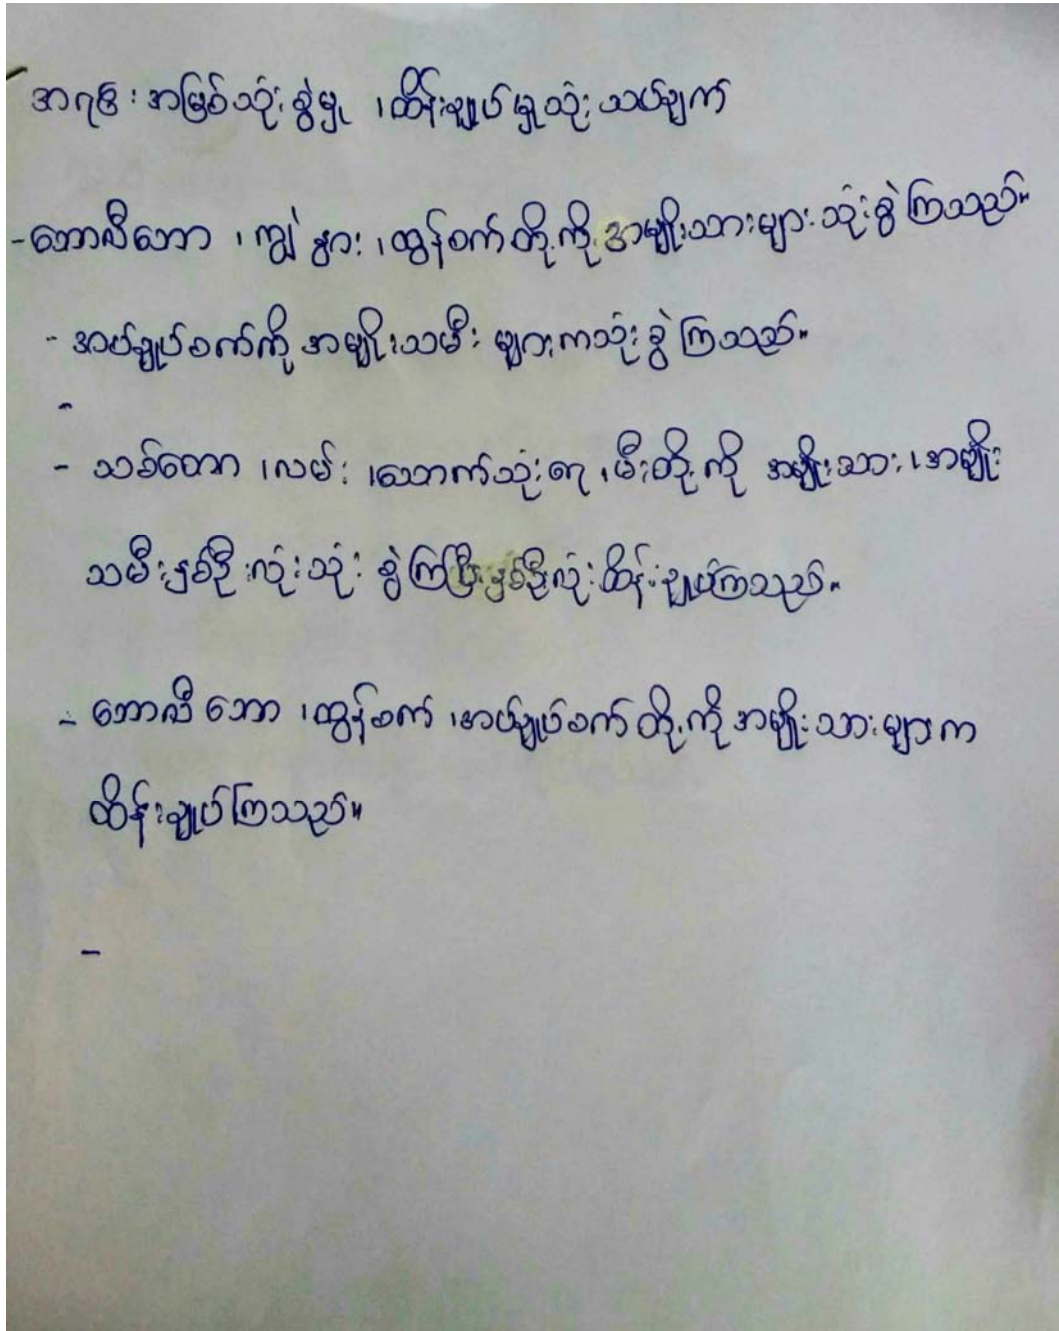 အရင်းအမြစ်သုံးစွဲမှု ၊ထိန်းချုပ်မှုသုံးသပ်ချက်
-ဘောလီဘော ၊ ကျွဲ နွား ၊ထွန်စက် တို့ကို အမျိုးသားများ သုံးစွဲ ကြသည်။
- အပ်ချုပ်စက်ကို အမျိုးသမီး များကသုံးစွဲ ကြသည်။
-
- သစ်တော ၊လမ်း ၊သောက်သုံးရေ ၊မီးတို့ ကို အမျိုးသား ၊အမျိုး
သမီးနှစ်ဦးလုံးသုံး စွဲကြပြီးနှစ်ဦးလုံးထိန်းချုပ်ကြသည်။
- ဘောလီ ဘော ၊ထွန်စက် ၊အပ်ချုပ်စက် တို့ကို အမျိုးသားများက
ထိန်းချုပ်ကြသည်။
-